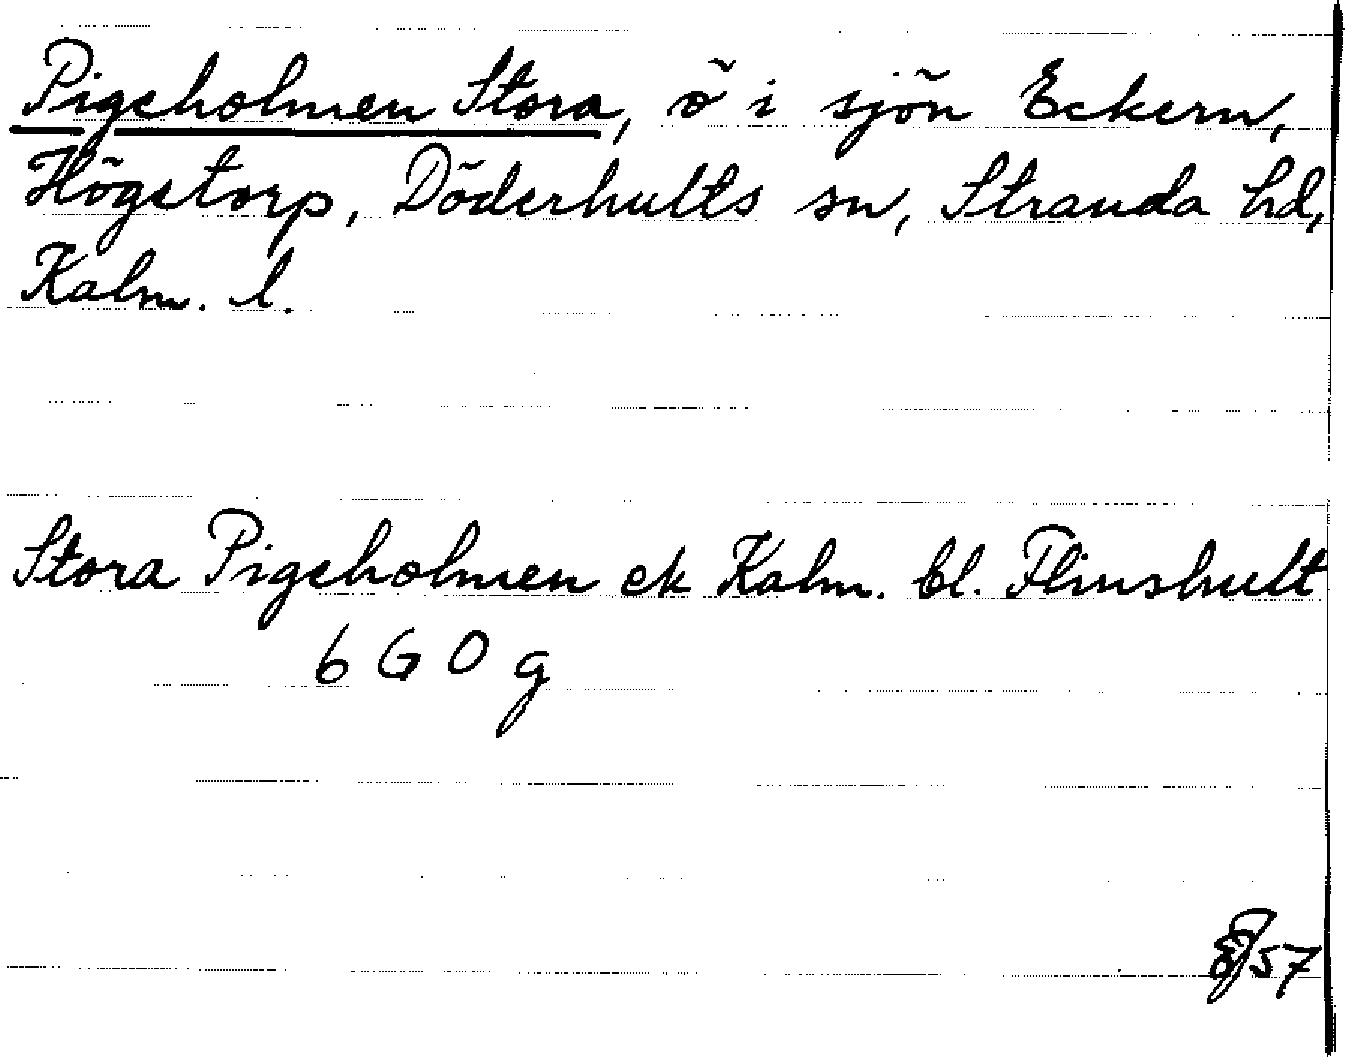 Pigeholmen Stora, ö i sjön Eckern,
Högetorp, Döderhults sn, Stranda hd,
Kalm. l.
Stora Pigeholmen ek Kalm. bl. Flinshult
6 G O g
57